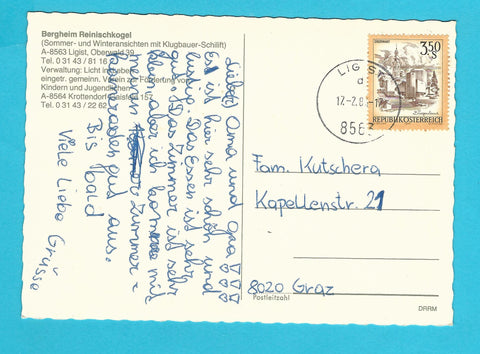 Bergheim Reinischkogel
(Sommer- und Winteransichten mit Klugbauer-Schilift)
A-8563 Ligist, Oberwald 39
Tel. 0 31 43 / 81 16
Verwaltung: Licht ins Leben
eingetr. gemeinn. Verein zur Förderung von
Kindern und Jugendlichen
A-8564 Krottendorf-Gaisfeld 157
Tel. 0 31 43 / 22 62
Liebe Oma und Opa ♡♡♡
Es ist hier sehr schön und
lustig. Das Essen ist sehr
gut. Das Zimmer ist sehr
klein aber ich komme mit
meinen Zimmer-
kameraden gut aus.
Bis bald
Viele Liebe Grüsse
350
S
REPUBLIK ÖSTERREICH
LIGIST
a
8562
Fam. Kutschera
Kapellenstr. 21
8020 Graz
Postleitzahl
DRRM